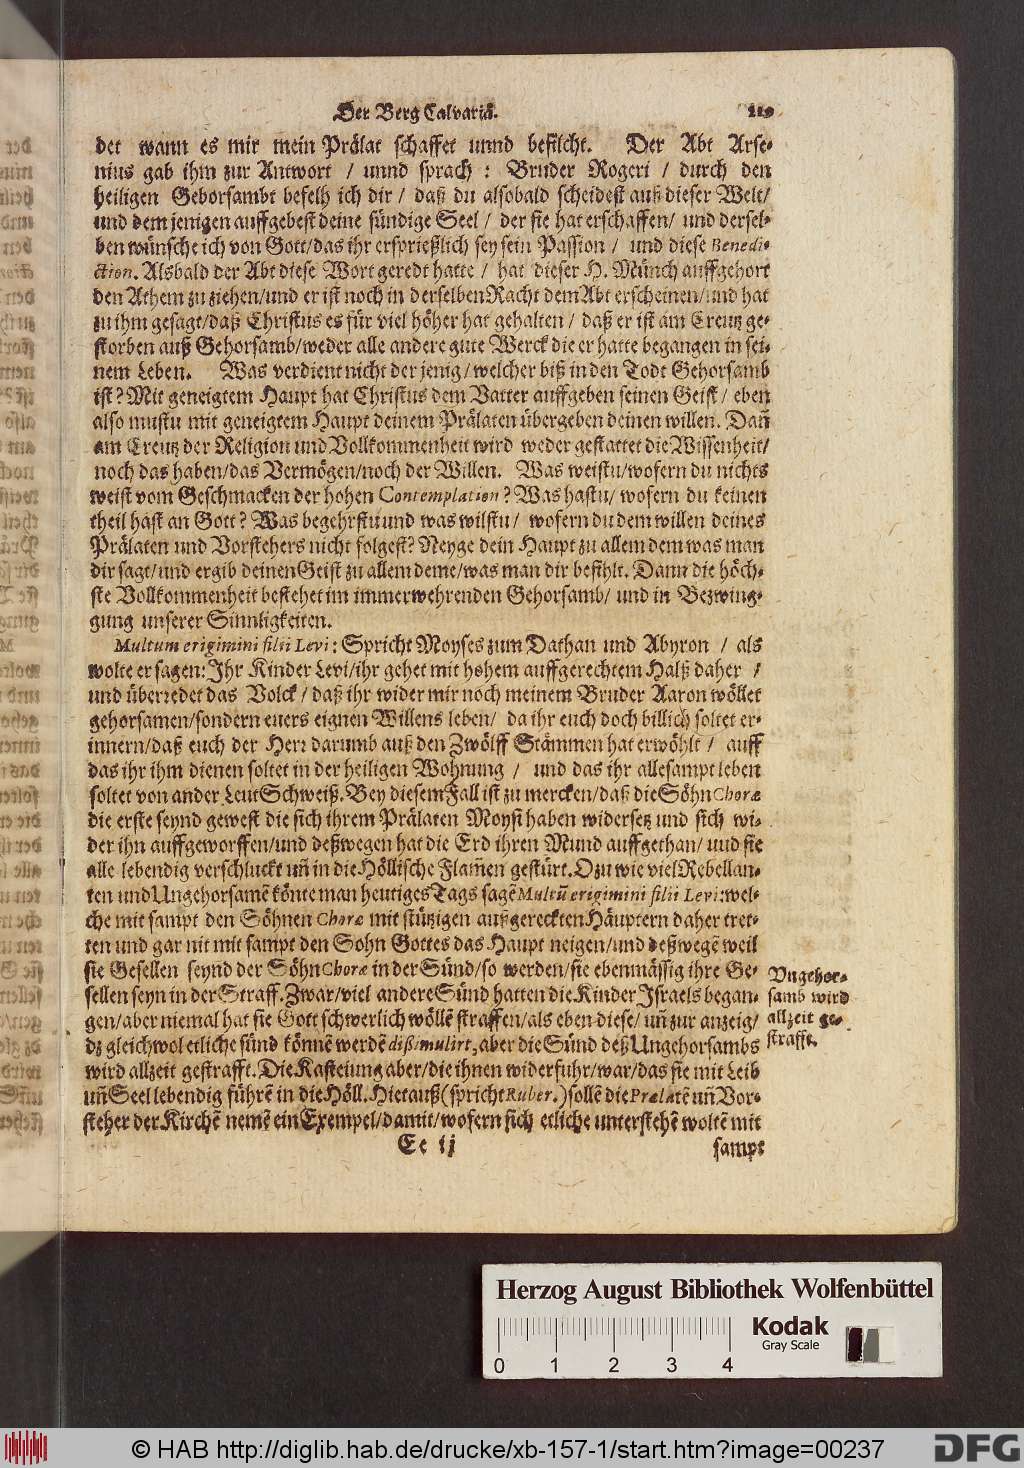 Der Berg Calvariæ. 219
det wann es mir mein Prälat schaffet unnd befilcht. Der Abt Arse-
nius gab ihm zur Antwort / unnd sprach : Bruder Rogeri / durch den
heiligen Gehorsambt befelh ich dir / daß du alsobald scheidest auß dieser Welt/
und dem jenigen auffgebest deine sündige Seel / der sie hat erschaffen/ und dersel-
ben wünsche ich von Gott/das ihr ersprießlich sey sein Passion / und diese Benedi-
ction. Alsbald der Abt diese Wort geredt hatte / hat dieser H. Münch auffgehört
den Athem zu ziehen/und er ist noch in derselben Nacht dem Abt erscheinen/und hat
zu ihm gesagt/daß Christus es für viel höher hat gehalten / daß er ist am Creutz ge-
storben auß Gehorsamb/weder alle andere gute Werck die er hatte begangen in sei-
nem Leben. Was verdient nicht der jenig/welcher biß in den Todt Gehorsamb
ist? Mit geneigtem Haupt hat Christus dem Vatter auffgeben seinen Geist / eben
also mustu mit geneigtem Haupt deinem Prälaten übergeben deinen willen. Dañ
am Creutz der Religion und Vollkommenheit wird weder gestattet die Wissenheit/
noch das haben/das Vermögen/noch der Willen. Was weistu/wofern du nichts
weist vom Geschmacken der hohen Contemplation? Was hastu/ wofern du keinen
theil hast an Gott? Was begehrstu und was wilstu/ wofern du dem willen deines
Prälaten und Vorstehers nicht folgest? Neyge dein Haupt zu allem dem was man
dir sagt/und ergib deinen Geist zu allem deme/was man dir befihlt. Dann die höch-
ste Vollkommenheit bestehet im immerwehrenden Gehorsamb/ und in Bezwing-
gung unserer Sinnligkeiten.
Multum erigimini filii Levi: Spricht Moyses zum Dathan und Abyron / als
wolte er sagen: Ihr Kinder Levi/ihr gehet mit hohem auffgerechtem Halß daher /
und überredet das Volck / daß ihr wider mir noch meinem Bruder Aaron wöllet
gehorsamen/sondern euers eignen Willens leben/ da ihr euch doch billich soltet er-
innern/daß euch der Herr darumb auß den Zwölff Stämmen hat erwöhlt / auff
das ihr ihm dienen soltet in der heiligen Wohnung / und das ihr allesampt leben
soltet von ander Leut Schweiß. Bey diesem Fall ist zu mercken/daß die Söhn Choræ
die erste seynd gewest die sich ihrem Prälaten Moysi haben widersetz und sich wi-
der ihn auffgeworffen/und deßwegen hat die Erd ihren Mund auffgethan/ und sie
alle lebendig verschluckt uñ in die Höllische Flam̃en gestürt. O zu wie viel Rebellan-
ten und Ungehorsamē könte man heutiges Tags sagē Multū erigimini filii Levi: wel-
che mit sampt den Söhnen Choræ mit stützigen außgereckten Häuptern daher tret-
ten und gar nit mit sampt den Sohn Gottes das Haupt neigen/und deßwegē weil
sie Gesellen seynd der Söhn Choræ in der Sünd/so werden/sie ebenmässig ihre Ge-
sellen seyn in der Straff. Zwar/viel andere Sünd hatten die Kinder Israels began-
gen/aber niemal hat sie Gott schwerlich wöllē straffen/als eben diese/ uñ zur anzeig/
dz gleichwol etliche sünd könnē werdē dißimulirt, aber die Sünd deß Ungehorsambs
wird allzeit gestrafft. Die Kasteiung aber/die ihnen widerfuhr/war/das sie mit Leib
uñ Seel lebendig führē in die Höll. Hierauß (spricht Ruber.) sollē die Prælatē uñ Vor-
steher der Kirchē nemē ein Exempel/damit/wofern sich etliche unterstehē woltē mit
Ungehor-
samb wird
allzeit ge-
strafft.
Ee ij sampt
Herzog August Bibliothek Wolfenbüttel
0 1 2 3 4
Kodak
Gray Scale
© HAB http://diglib.hab.de/drucke/xb-157-1/start.htm?image=00237
DFG